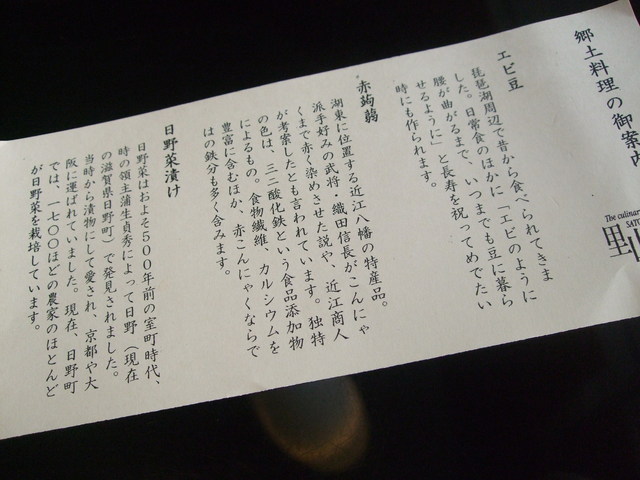 郷土料理の御案内
The culinar
SATO
エビ豆
琵琶湖周辺で昔から食べられてきま
した。日常食のほかに「エビのように
腰が曲がるまで、いつまでも豆に暮ら
せるように」と長寿を祝ってめでたい
時にも作られます。
赤蒟蒻
湖東に位置する近江八幡の特産品。
派手好みの武将・織田信長がこんにゃ
くまで赤く染めさせた説や、近江商人
が考案したとも言われています。独特
の色は、三二酸化鉄という食品添加物
によるもの。食物繊維、カルシウムを
豊富に含むほか、赤こんにゃくならで
はの鉄分も多く含みます。
日野菜漬け
日野菜はおよそ500年前の室町時代、
時の領主蒲生貞秀によって日野（現在
の滋賀県日野町）で発見されました。
当時から漬物にして愛され、京都や大
阪に運ばれていました。現在、日野町
では、一七〇〇ほどの農家のほとんど
が日野菜を栽培しています。